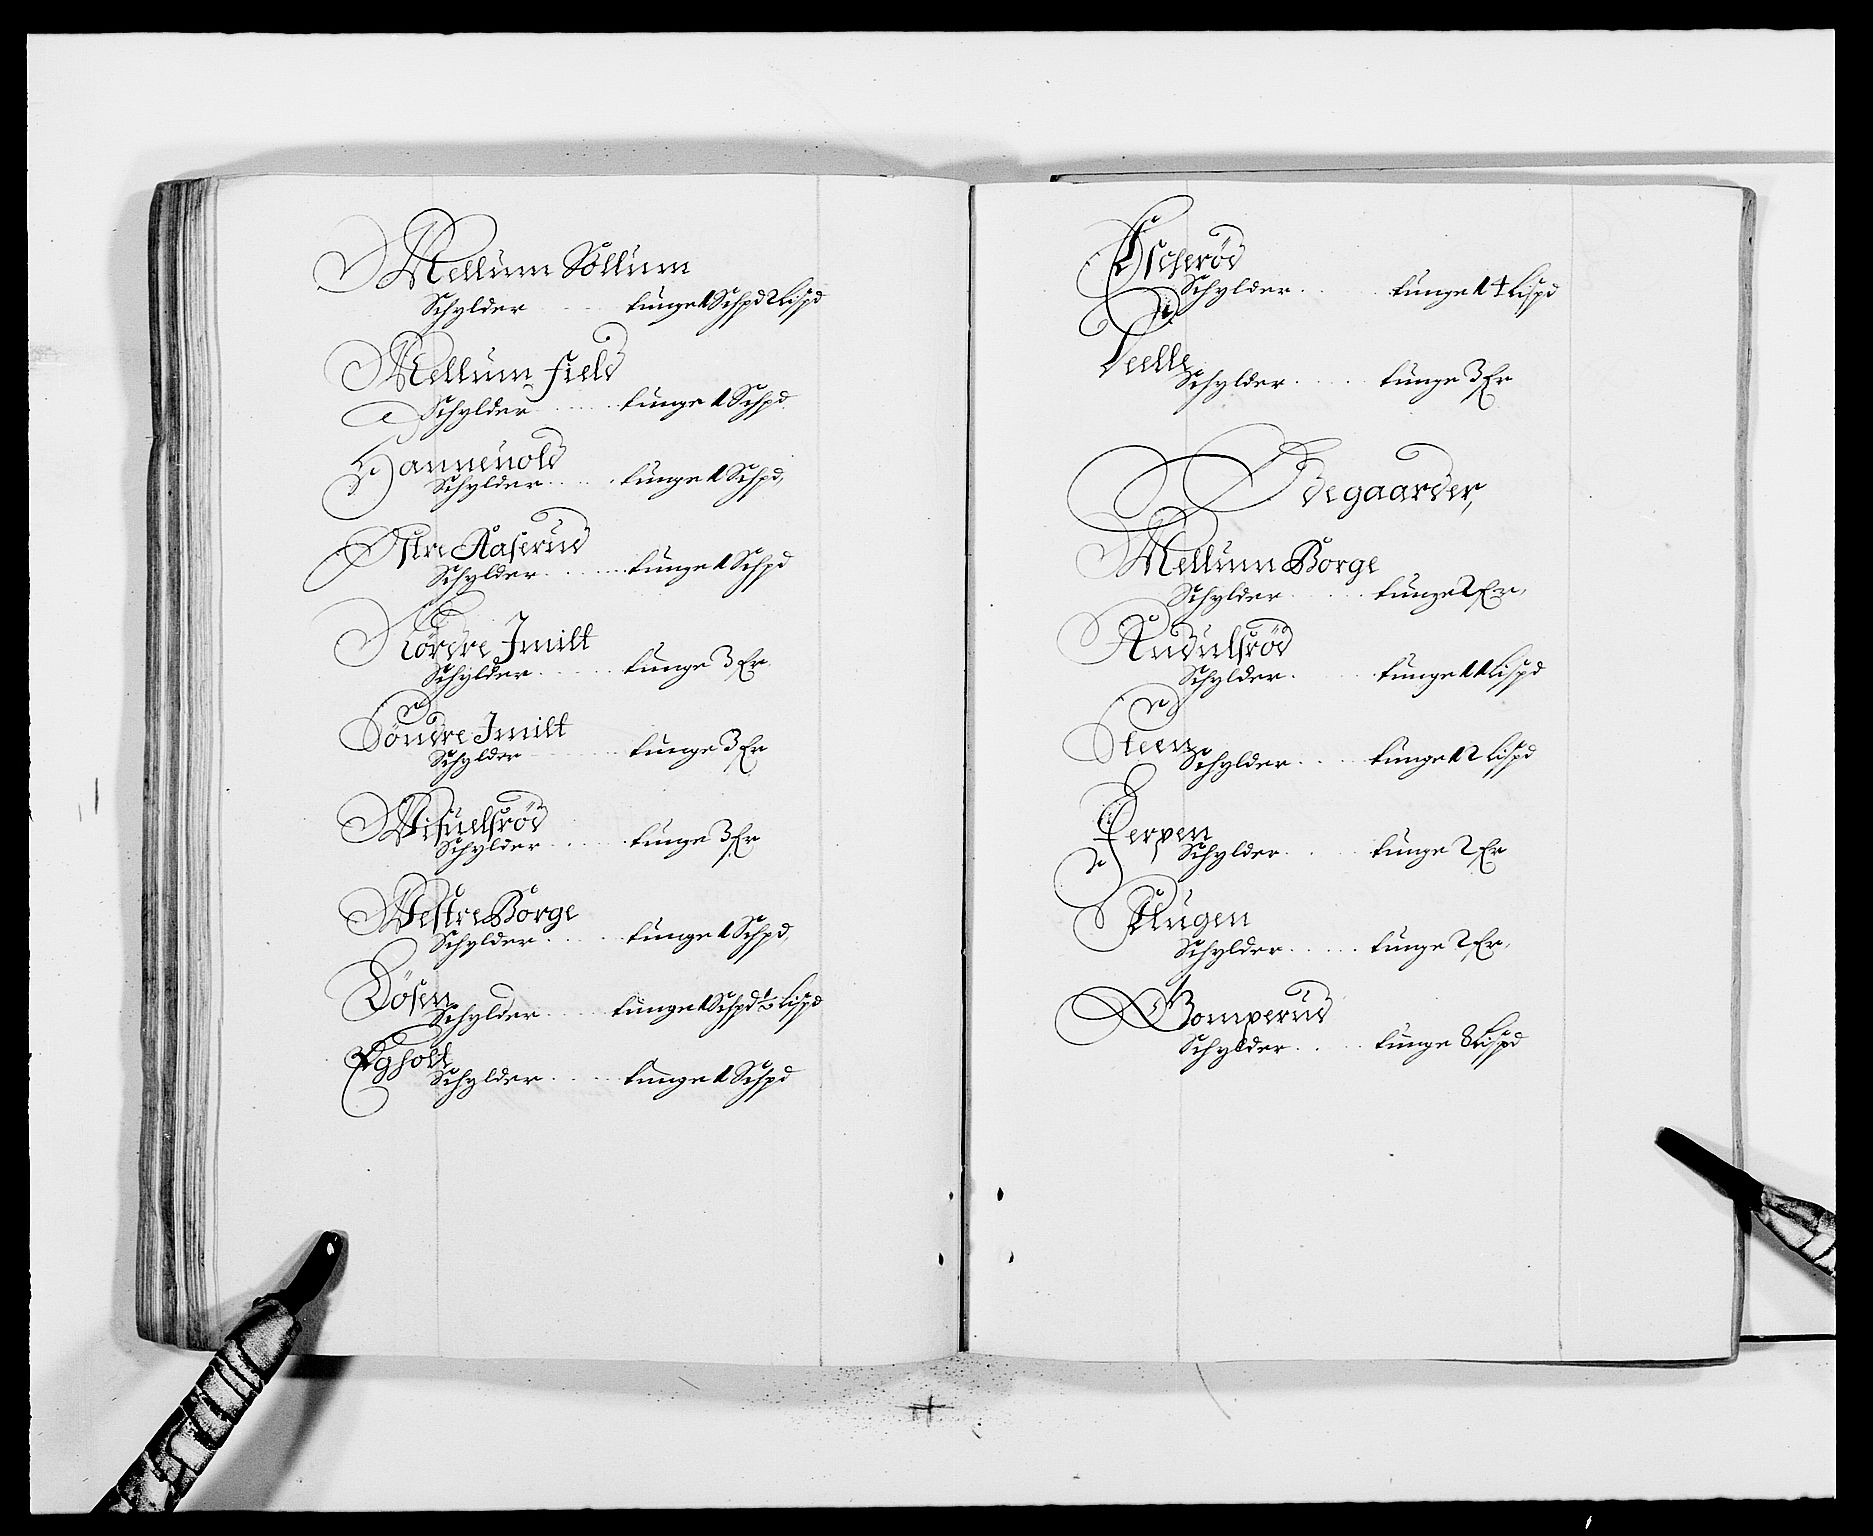 Mellum Sollum
Schylder . . . tunge 1 Schpd 2 Lispd
Mellum field
Schylder . . . tunge 1 Schpd
Hannevold
Schylder . . . tunge 1 Schpd,
Østre Aaserud
Schylder . . . tunge 1 Schpd
Nordre Jmilt
Schylder . . . tunge 3 Er,
Söndre Jmilt
Schylder . . . tunge 3 Er
Wifuelsröd
Schylder . . . tunge 3 Er
Westre Borge
Schylder . . . tunge 1 Schpd,
Döfen
Schylder . . . tunge 1 Schpd ½ Lispd
Egholt
Schylder . . . tunge 1 Schpd
Escherød
Schylder . . . tunge 14 Lispd
Teelle
Schylder . . . tunge 3 Er
Ödegaarder,
Mellum Borge
Schylder . . . tunge 2 Er,
Audulsröd
Schylder . . . tunge 11 Lispd
Steen
Schylder . . . tunge 12 Lispd
Jerpen
Schylder . . . tunge 2 Er
Schylder . . . tunge 2 Er,
Gomperud
Schylder . . . tunge 8 Lispd